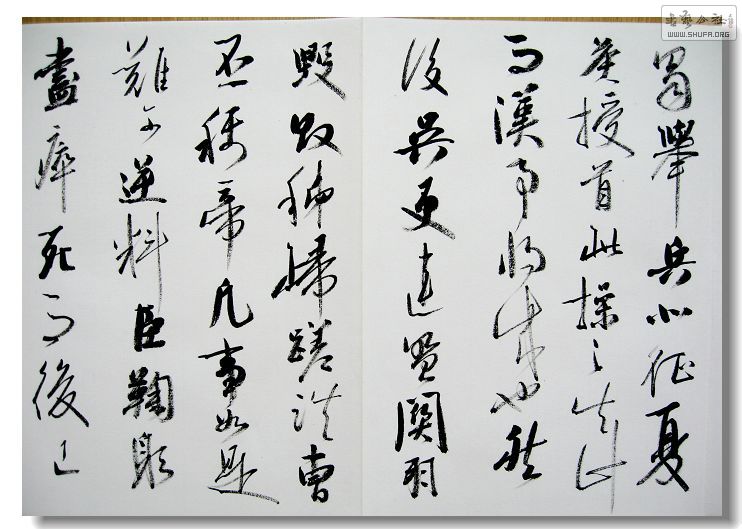 書藝公社
WWW.SHUFA.ORG
蜀舉兵北征夏
侯授首此操之失計
而漢事將成也然
後吳更違盟關羽
毀敗秭歸蹉跌曹
丕稱帝凡事如是
難可逆料臣鞠躬
盡瘁死而後已